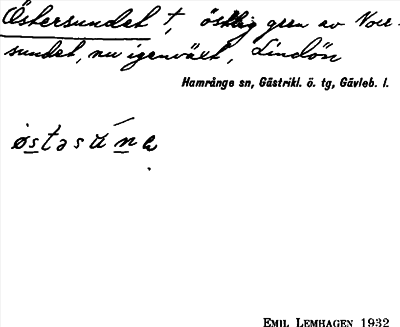 Östersundet †, östlig gren av Norr-
sundet, nu igenväxt, Lindön
Hamrånge sn, Gästrikl. ö. tg, Gävleb. l.
østasúna
EMIL LEMHAGEN 1932